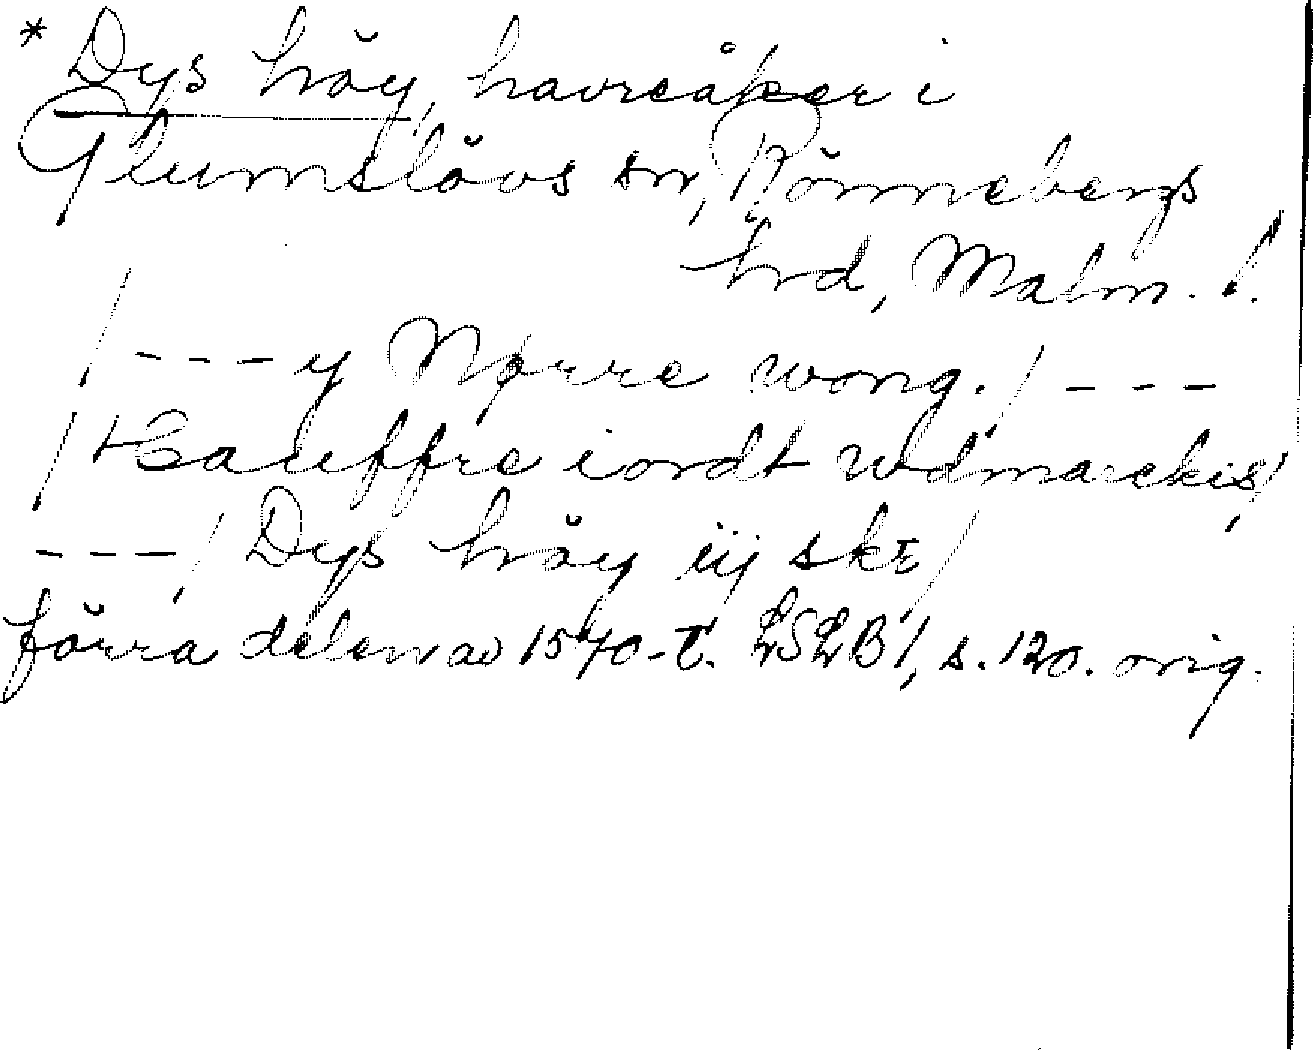 * Dys höy, havreåker i
Glumslövs sn, Rönnebergs
hrd, Malm. l.
/---y Nørre wong./---
/Hauffre iordt udmarckis/
---/ Dys höy iij skr/
förra delen av 1570-t. LSLB 1, s. 120. orig.